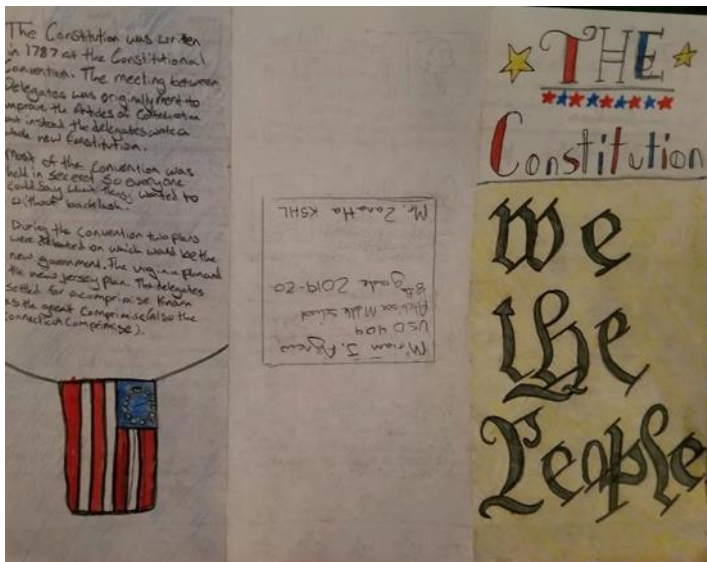 The Constitution was written
in 1787 at the Constitutional
Convention. The meeting between
Delegates was originally ment to
improve the Articles of Confederation
but instead the delegates wrote a
whole new Constitution.
Most of the Convention was
held in secret so everyone
could say what they wanted to
without backlash.
During the Convention two plans
were debated on which would be the
new government. The virginia plan and
the new jersey plan. The delegates
settled for a comprimise known
as the great Comprimise (also the
Connecticut Comprimise).
Miriam J. Agnew
USD 409
Middle School
8th grade 2019-20
Mr. KSHL
THE
Constitution
We
the
People